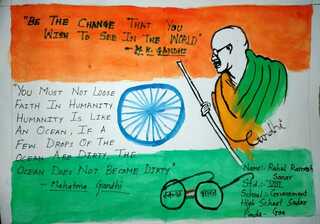 "BE THE CHANGE THAT YOU
WISH TO SEE IN THE WORLD"
- M.K. GANDHI
"YOU MUST NOT LOOSE
FAITH IN HUMANITY
HUMANITY IS LIKE
AN OCEAN, IF A
FEW DROPS OF THE
OCEAN ARE DIRTY, THE
OCEAN DOES NOT BECOME DIRTY"
- Mahatma Gandhi
Gandhi
Name:- Rahul Ramesh
Std:- VIII
School:- Government
High School Sadar
Ponda - Goa